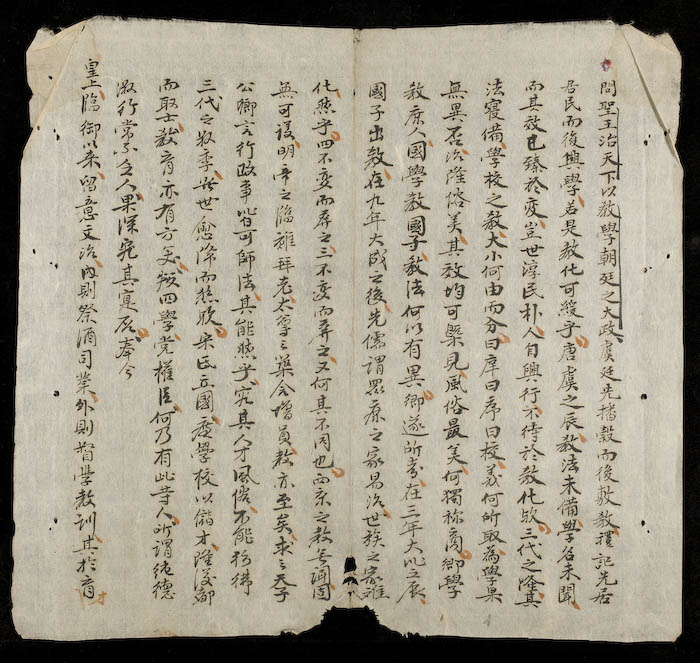 問聖王治天下以教學朝廷之大政虞廷先播穀而後敷教禮記先居
居民而復興學若是教化可緩乎唐虞之辰教法未備學名未聞
而其效已臻於変豈世淳民朴人自興行不待於教化欤三代之隆其
法寖備學校之教大小何由而分曰庠曰序曰校義何所取為學果
無異否治隆俗美其效均可槩見風俗最美何獨称商鄉學
教庶人國學教國子教法何以有異鄉遂所考在三年大比之辰
國子出教在九年大成之後先儒謂眾庶之家易治世族之家难
化然乎四不变而屏之三不变而屏之又何其不同也西京之教無謂固
無可議明帝之臨雍拜老太學之築舍增員教亦至矣求之天子
公卿言行政事皆可師法其能然乎究其人才風俗不能彷彿
三代之叔季岂世愈降而愈殁宋氏立國慶學校以儲才隆湲都
而取士教育亦有方矣頖四學党權臣何乃有此等人所謂純德
淑行常不乏人果深究其寔否奉今
皇上臨御以来留意文治內則祭酒司業外則督學教訓其於育才